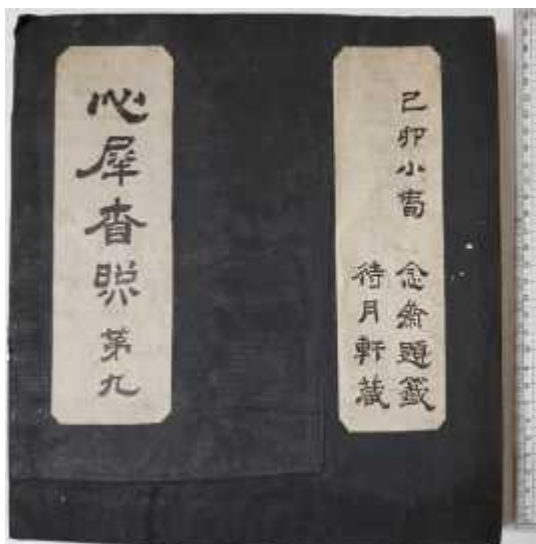 己卯小旾 念齋題籤
待月軒藏
心犀香照 第九